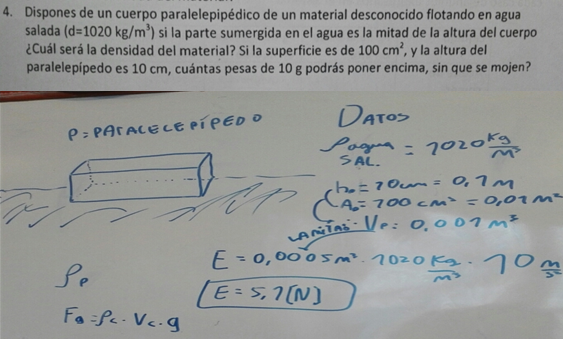 4. Dispones de un cuerpo paralelepipédico de un material desconocido flotando en agua
salada (d=1020 kg/m³) si la parte sumergida en el agua es la mitad de la altura del cuerpo
¿Cuál será la densidad del material? Si la superficie es de 100 cm², y la altura del
paralelepípedo es 10 cm, cuántas pesas de 10 g podrás poner encima, sin que se mojen?
P=PARALELEPÍPEDO
DATOS
ρagua SAL. = 1020 Kg/m³
h₀ = 10cm = 0,1 m
A₀ = 100 cm² = 0,01 m²
LA MITAD Vp: 0,001 m³
E = 0,0005 m³ · 1020 Kg/m³ · 10 m/s²
ρp
E = 5,1 [N]
= ρc · Vc · g